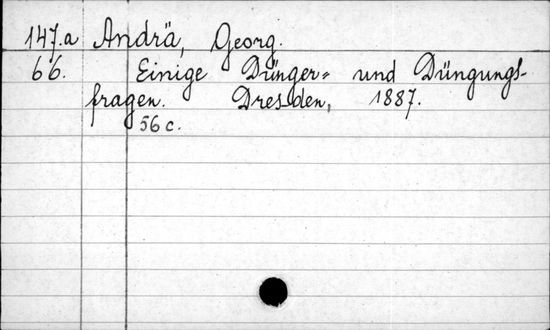 147.a Andrä, Georg.
66. Einige Dünger= und Düngungs-
fragen. Dresden, 1887.
56 c.